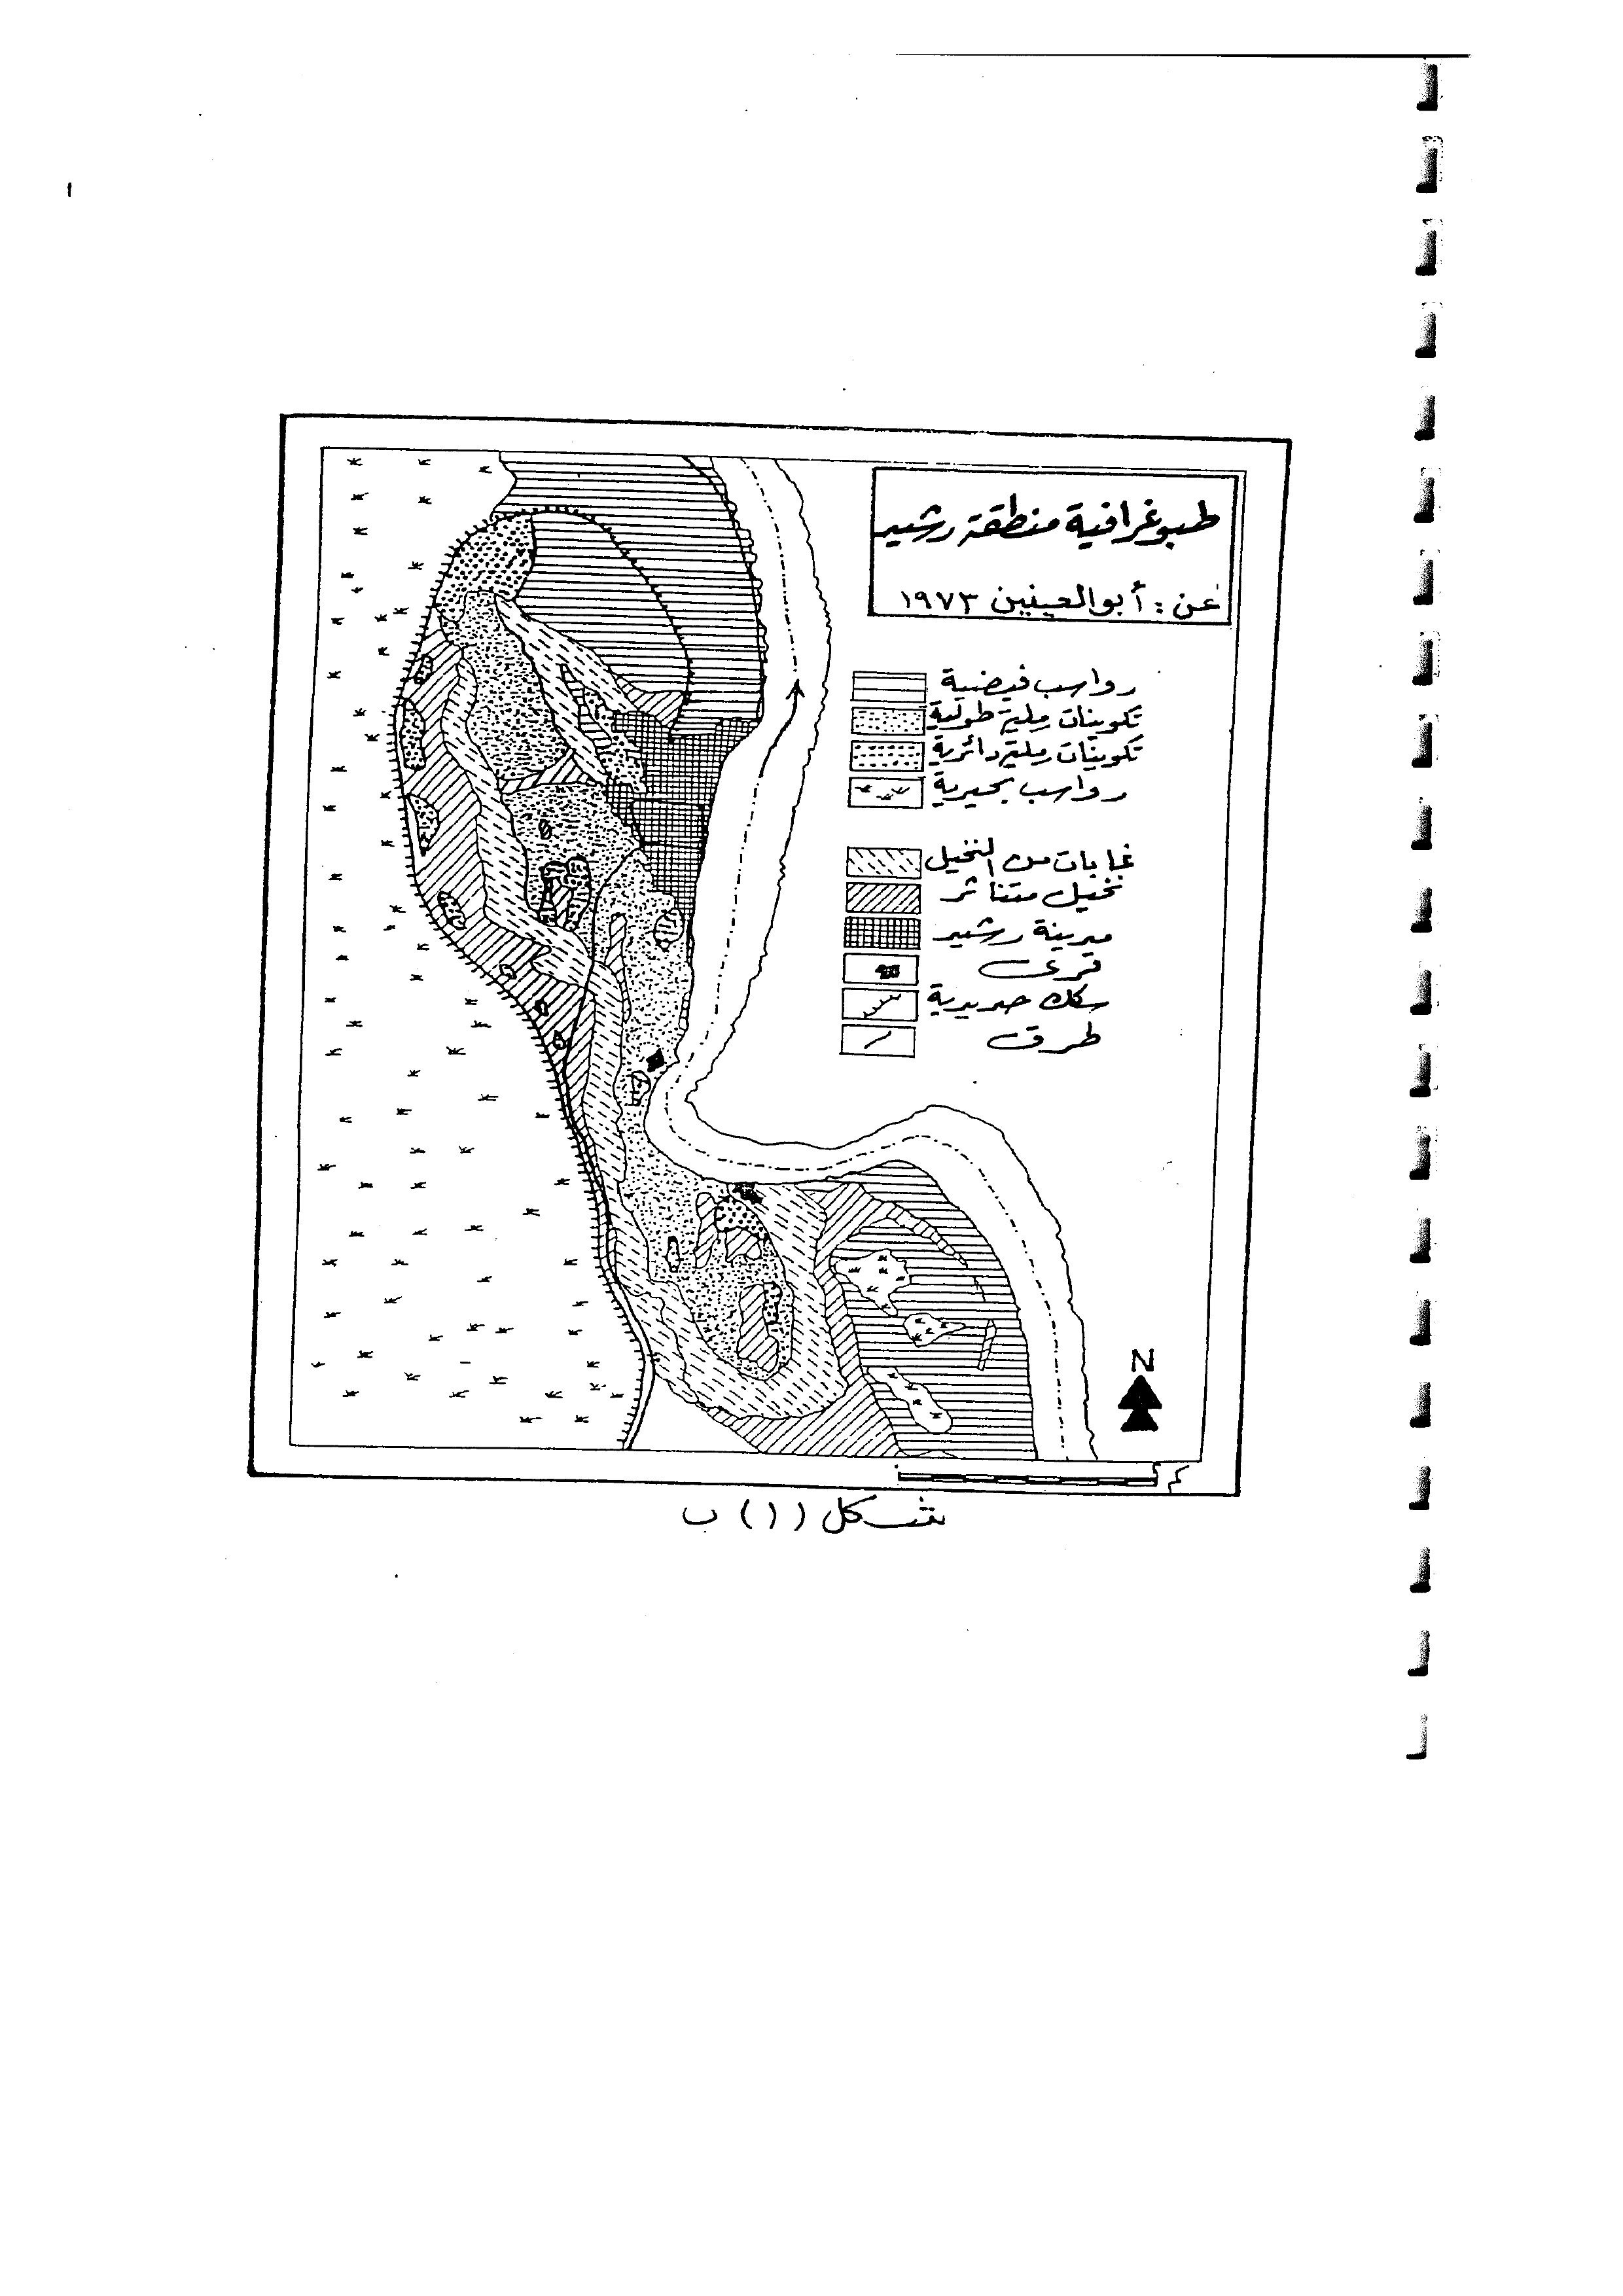 طبوغرافية منطقة رشيد
عن : أبو العينين ١٩٧٣
رواسب فيضية
تكوينات رملية طولية
تكوينات رملية دائرية
رواسب بحيرية
غابات من النخيل
نخيل متناثر
مدينة رشيد
قرى
سكك حديدية
طرق
N
شكل (١) ب